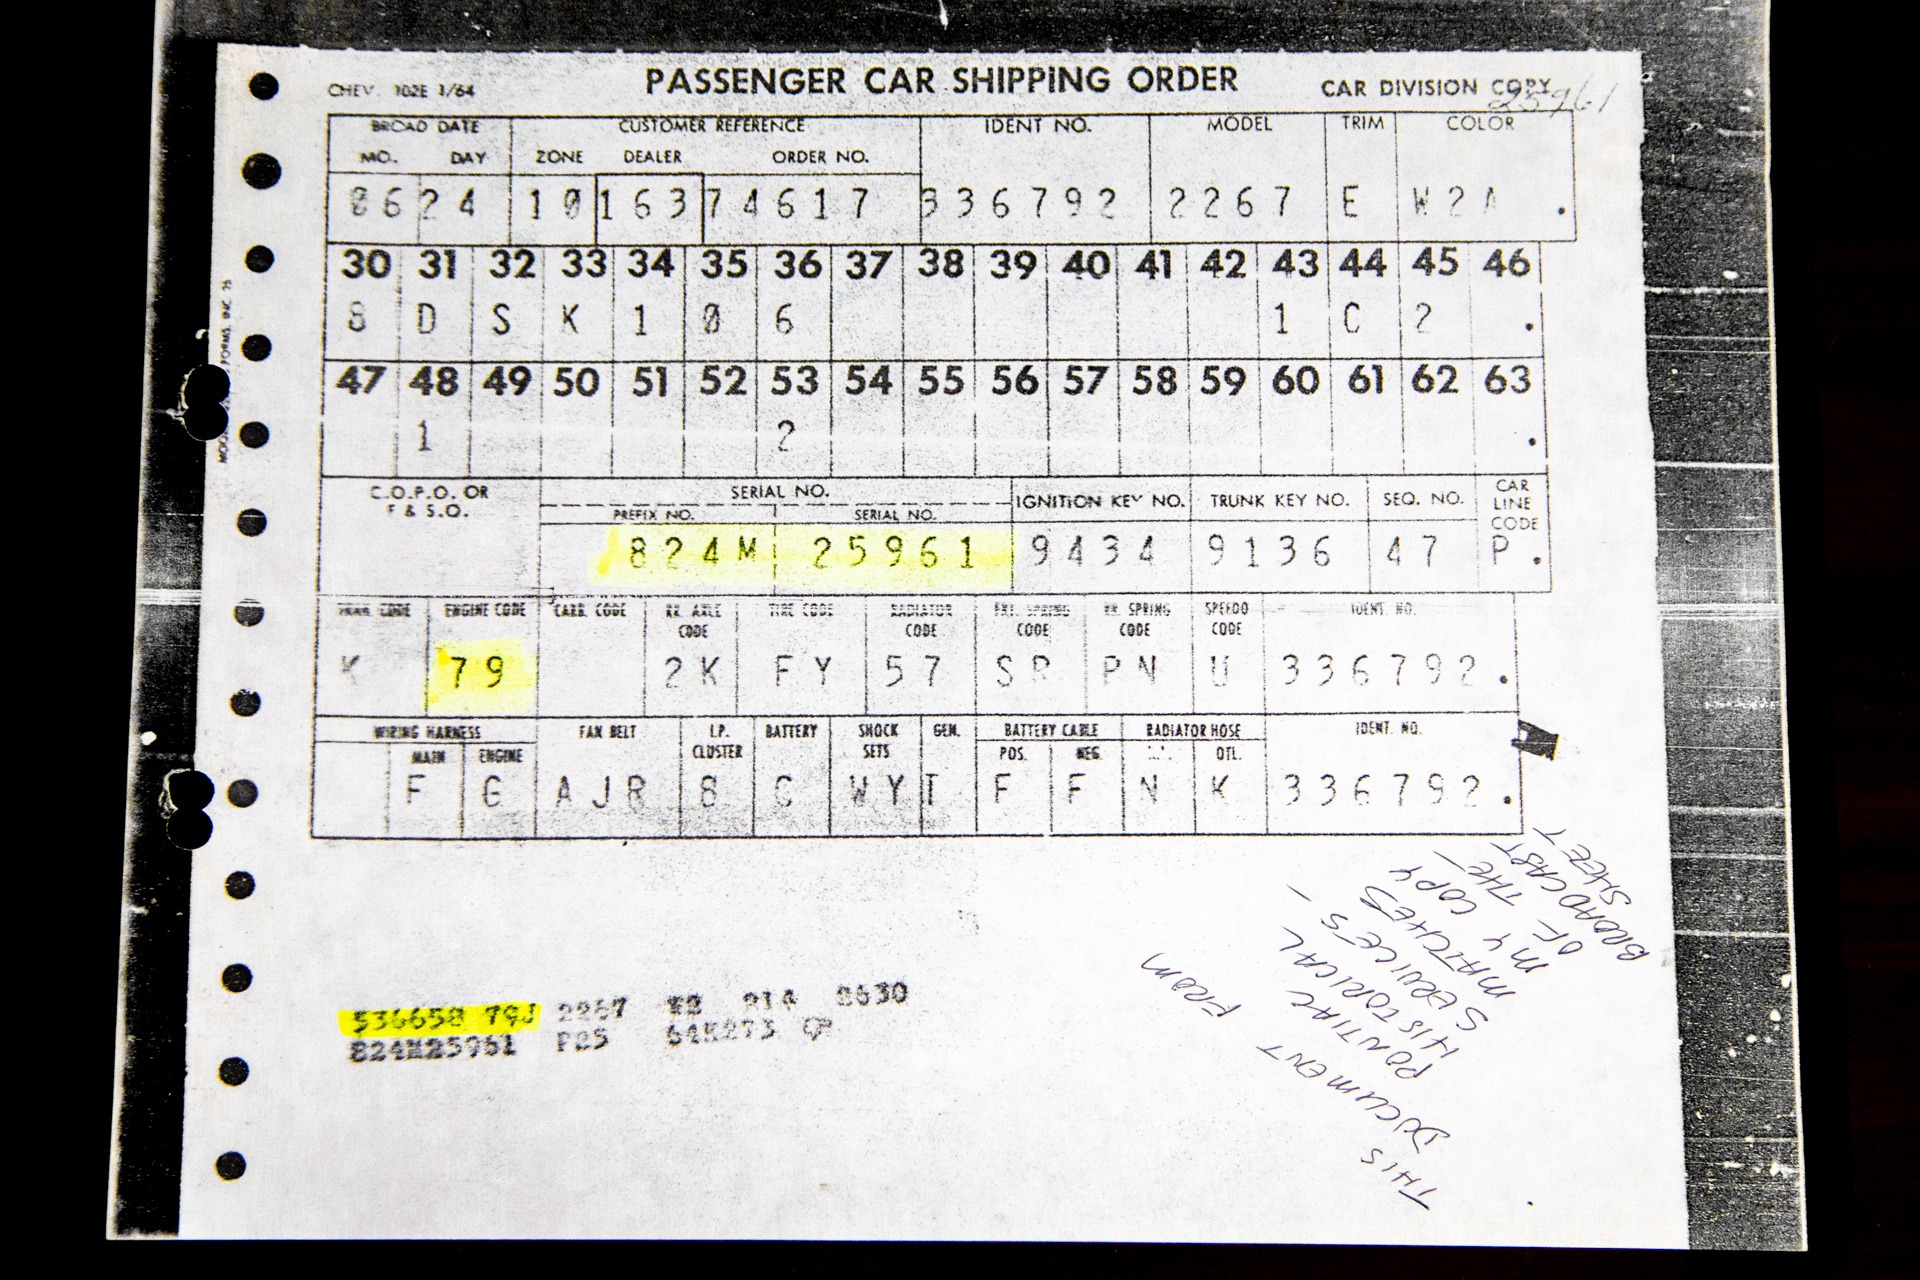 CHEV. 102E 1/64 PASSENGER CAR SHIPPING ORDER CAR DIVISION COPY
25961
BROAD DATE CUSTOMER REFERENCE IDENT NO. MODEL TRIM COLOR
MO. DAY ZONE DEALER ORDER NO.
06 24 10 163 74617 336792 2267 E W2A .
30 31 32 33 34 35 36 37 38 39 40 41 42 43 44 45 46
8 D S K 1 0 6 1 C 2 .
47 48 49 50 51 52 53 54 55 56 57 58 59 60 61 62 63
1 2 .
C.O.P.O. OR SERIAL NO. IGNITION KEY NO. TRUNK KEY NO. SEQ. NO. CAR
F & S.O. PREFIX NO. SERIAL NO. LINE
CODE
824M 25961 9434 9136 47 P .
TRAN. CODE ENGINE CODE CARB. CODE RR. AXLE TIRE CODE RADIATOR FRT. SPRING RR. SPRING SPEEDO IDENT. NO.
CODE CODE CODE CODE CODE
K 79 2K FY 57 SR PN U 336792 .
WIRING HARNESS FAN BELT I.P. BATTERY SHOCK GEN. BATTERY CABLE RADIATOR HOSE IDENT. NO.
MAIN ENGINE CLUSTER SETS POS. NEG. OTL.
F G AJR 8 C WY I F F N K 336792 .
536658 79J 2267 214
824M25961 P25
THIS DOCUMENT FROM
PONTIAC
HISTORICAL
SERVICE'S -
MATCHES
MY COPY
OF THE
BROADCAST
SHEET